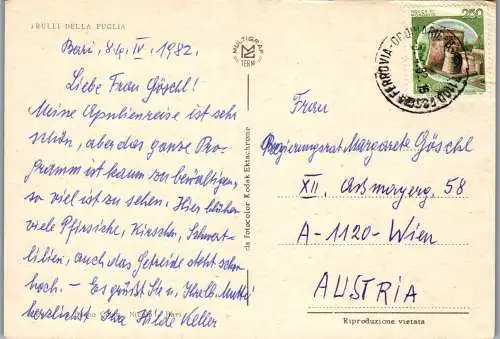 TRULLI DELLA PUGLIA
Bari, 8. IV. 1982.
Liebe Frau Göschl!
Meine Apulienreise ist sehr
schön, aber das ganze Pro-
gramm ist kaum zu bewältigen,
so viel ist zu sehen. Hier blühen
viele Pfirsiche, Kirschen, Schwert-
lilien, auch das Getreide steht schon
hoch. – Es grüßt Sie u. Mutti
herzlichst Ihre Hilde Keller
MULTIGRAF
TERNI
da Fotocolor Kodak Ektachrome
250
FERROVIA
Frau
Regierungsrat Margarete Göschl
XII. Aßmayerg. 58
A-1120-Wien
AUSTRIA
Riproduzione vietata